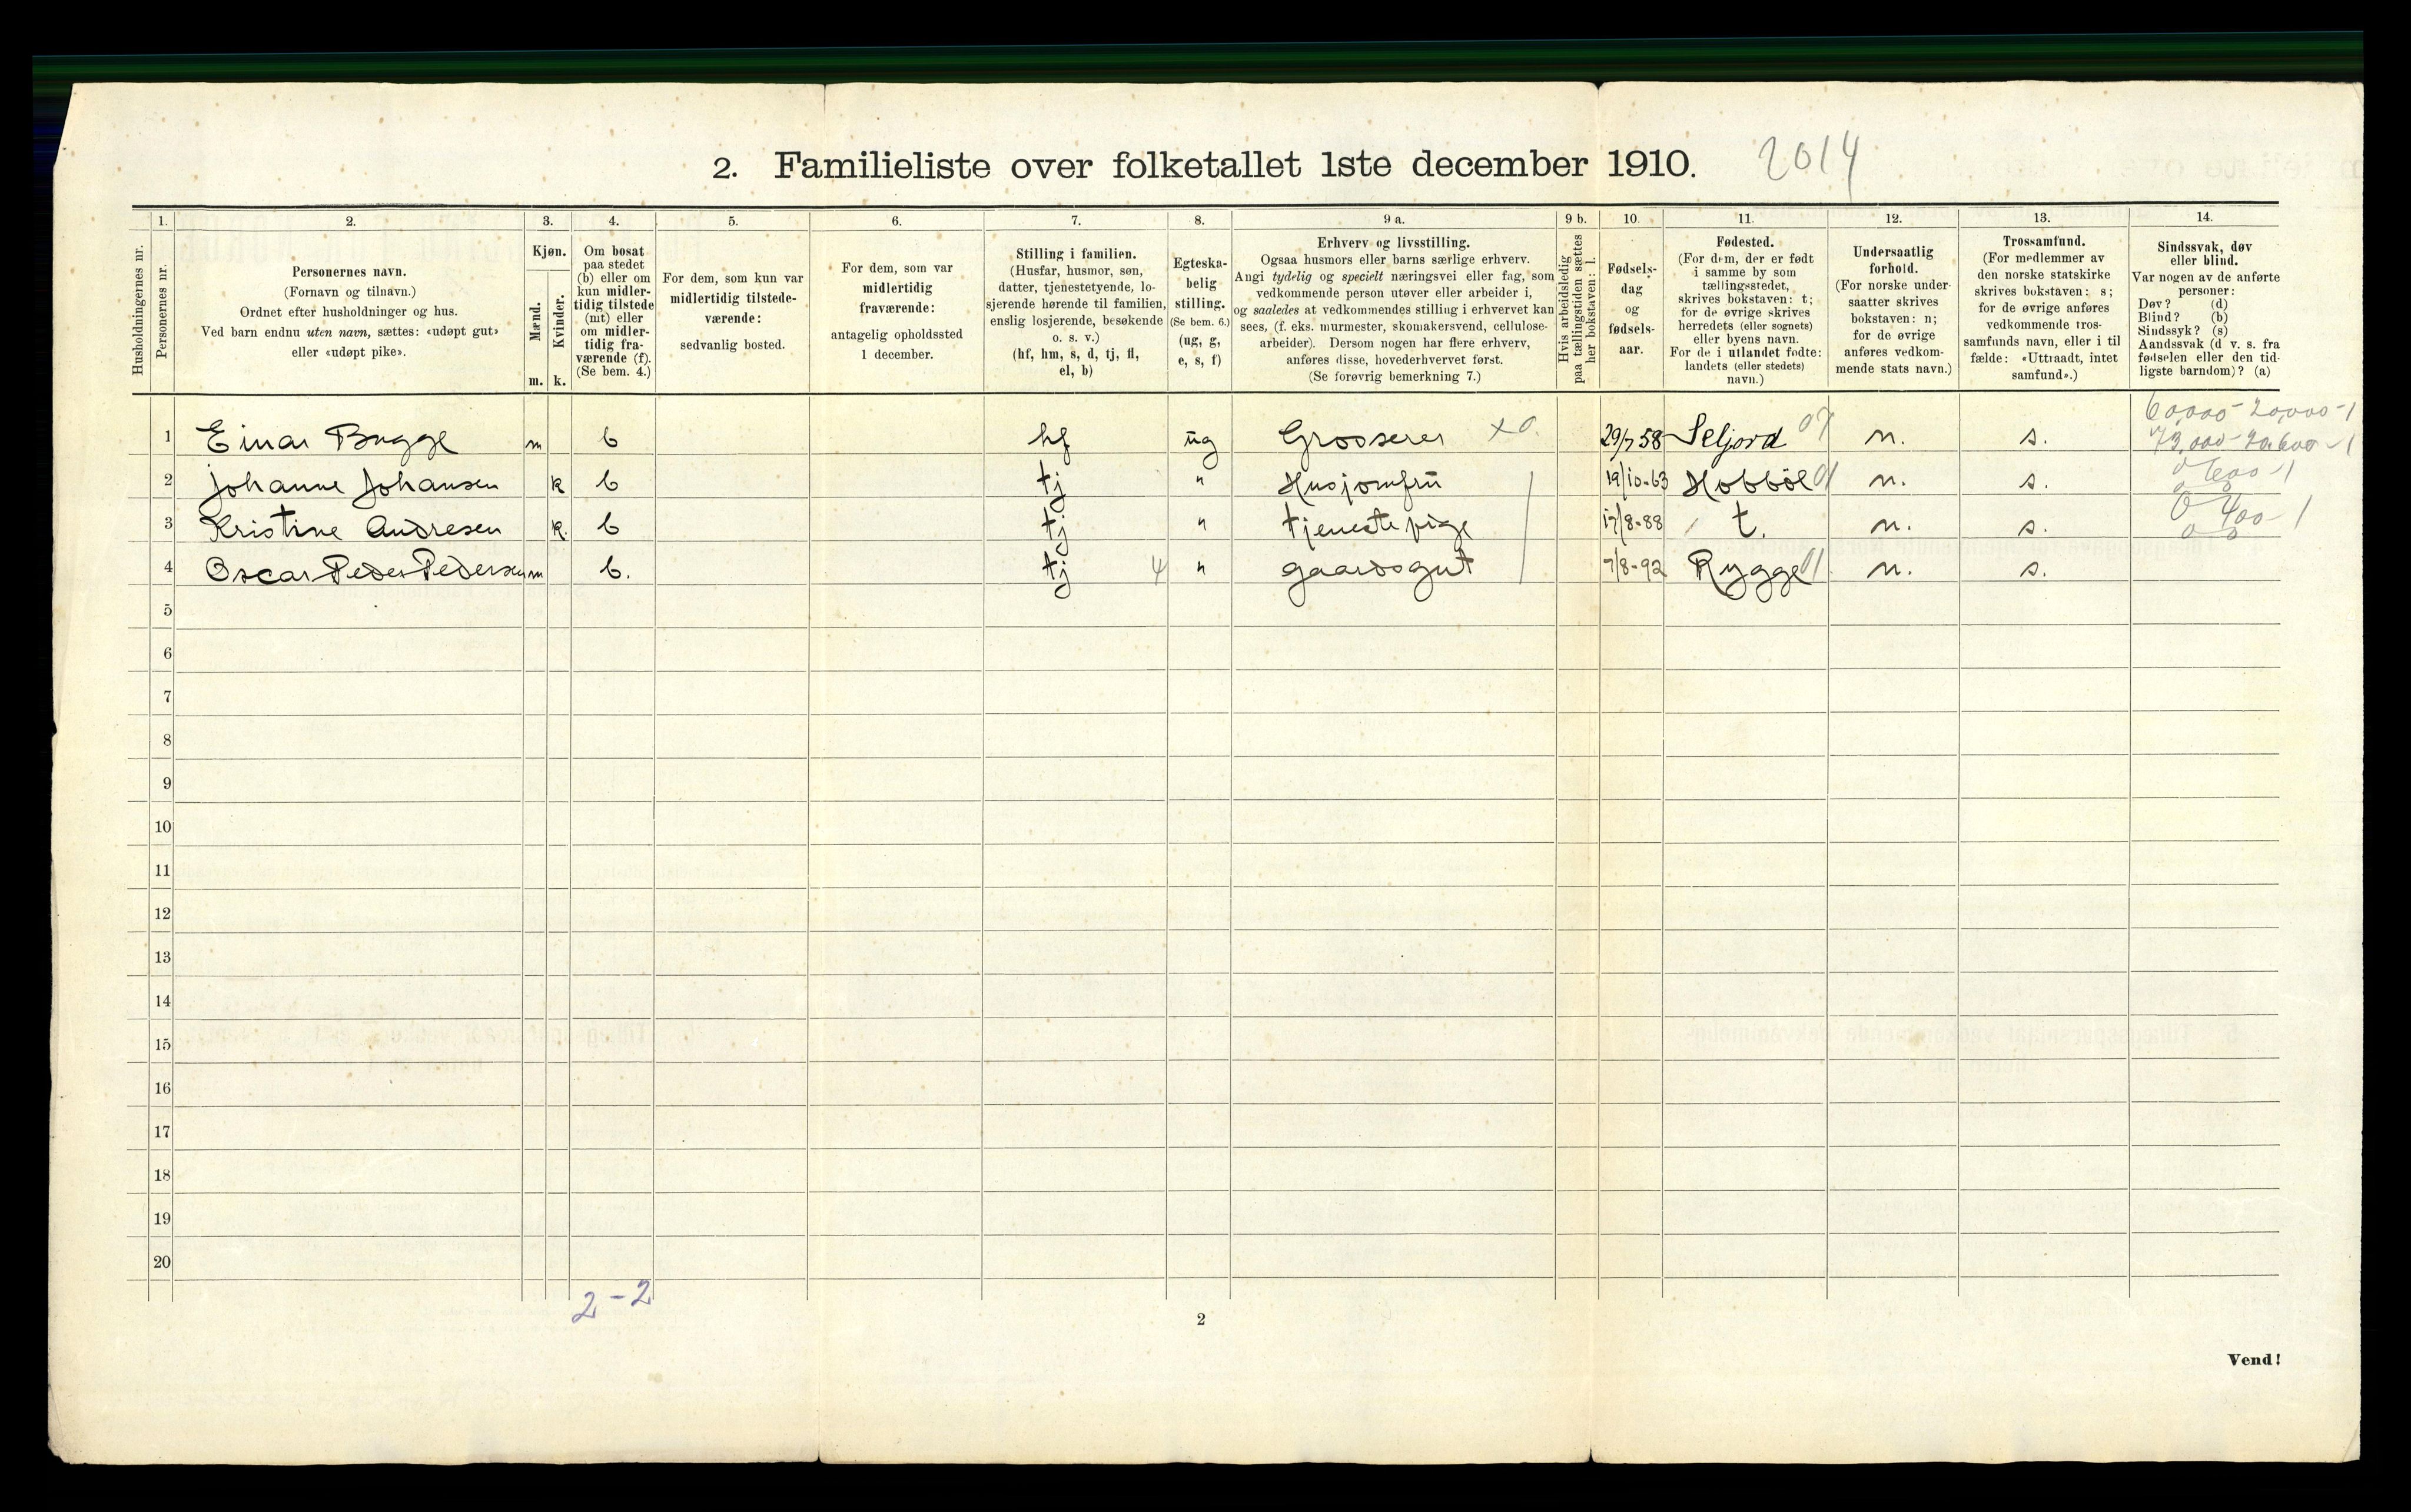 2. Familieliste over folketallet 1ste december 1910. 2014
Husholdningernes nr.
1.
Personernes nr.
2.
Personernes navn.
(Fornavn og tilnavn.)
Ordnet efter husholdninger og hus.
Ved barn endnu uten navn, sættes: «udøpt gut»
eller «udøpt pike».
3.
Kjøn.
Mænd.
m.
Kvinder.
k.
4.
Om bosat
paa stedet
(b) eller om
kun midler-
tidig tilstede
(mt) eller
om midler-
tidig fra-
værende (f).
(Se bem. 4.)
5.
For dem, som kun var
midlertidig tilstede-
værende:
sedvanlig bosted.
6.
For dem, som var
midlertidig
fraværende:
antagelig opholdssted
1 december.
7.
Stilling i familien.
(Husfar, husmor, søn,
datter, tjenestetyende, lo-
sjerende hørende til familien,
enslig losjerende, besøkende
o. s. v.)
(hf, hm, s, d, tj, fl,
el, b)
8.
Egteska-
belig
stilling.
(Se bem. 6.)
(ug, g,
e, s, f)
9 a.
Erhverv og livsstilling.
Ogsaa husmors eller barns særlige erhverv.
Angi tydelig og specielt næringsvei eller fag, som
vedkommende person utøver eller arbeider i,
og saaledes at vedkommendes stilling i erhvervet kan
sees, (f. eks. murmester, skomakersvend, cellulose-
arbeider). Dersom nogen har flere erhverv,
anføres disse, hovederhvervet først.
(Se forøvrig bemerkning 7.)
9 b.
Hvis arbeidsledig
paa tællingstiden sættes
her bokstaven: l.
10.
Fødsels-
dag
og
fødsels-
aar.
11.
Fødested.
(For dem, der er født
i samme by som
tællingsstedet,
skrives bokstaven: t;
for de øvrige skrives
herredets (eller sognets)
eller byens navn.
For de i utlandet fødte:
landets (eller stedets)
navn.)
12.
Undersaatlig
forhold.
(For norske under-
saatter skrives
bokstaven: n;
for de øvrige
anføres vedkom-
mende stats navn.)
13.
Trossamfund.
(For medlemmer av
den norske statskirke
skrives bokstaven: s;
for de øvrige anføres
vedkommende tros-
samfunds navn, eller i til
fælde: «Uttraadt, intet
samfund».)
14.
Sindssvak, døv
eller blind.
Var nogen av de anførte
personer:
Døv? (d)
Blind? (b)
Sindssyk? (s)
Aandssvak (d. v. s. fra
fødselen eller den tid-
ligste barndom)? (a)
60,000-20,000-1
1 Einar Bugge m b hf ug Grosserer x0. 29/7 58 Seljord 07 n. s. 73,000-20,600-1
2 Johanne Johansen k b tj " Husjomfru 19/10-63 Hobböl 01 n. s. 0 600-1
3 Kristine Andresen k. b tj " tjenestepige 17/8-88 t. n. s. 0 400-1
4 Oscar Peder Pedersen m b. tj 4 " gaardsgut 7/8-92 Rygge 01. n. s.
5
6
7
8
9
10
11
12
13
14
15
16
17
18
19
20
2-2
2
Vend!